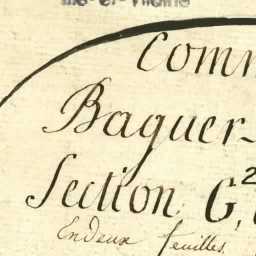 Ille-et-Vilaine
Comm
Baguer-
Section, G, 2
En deux feuilles.